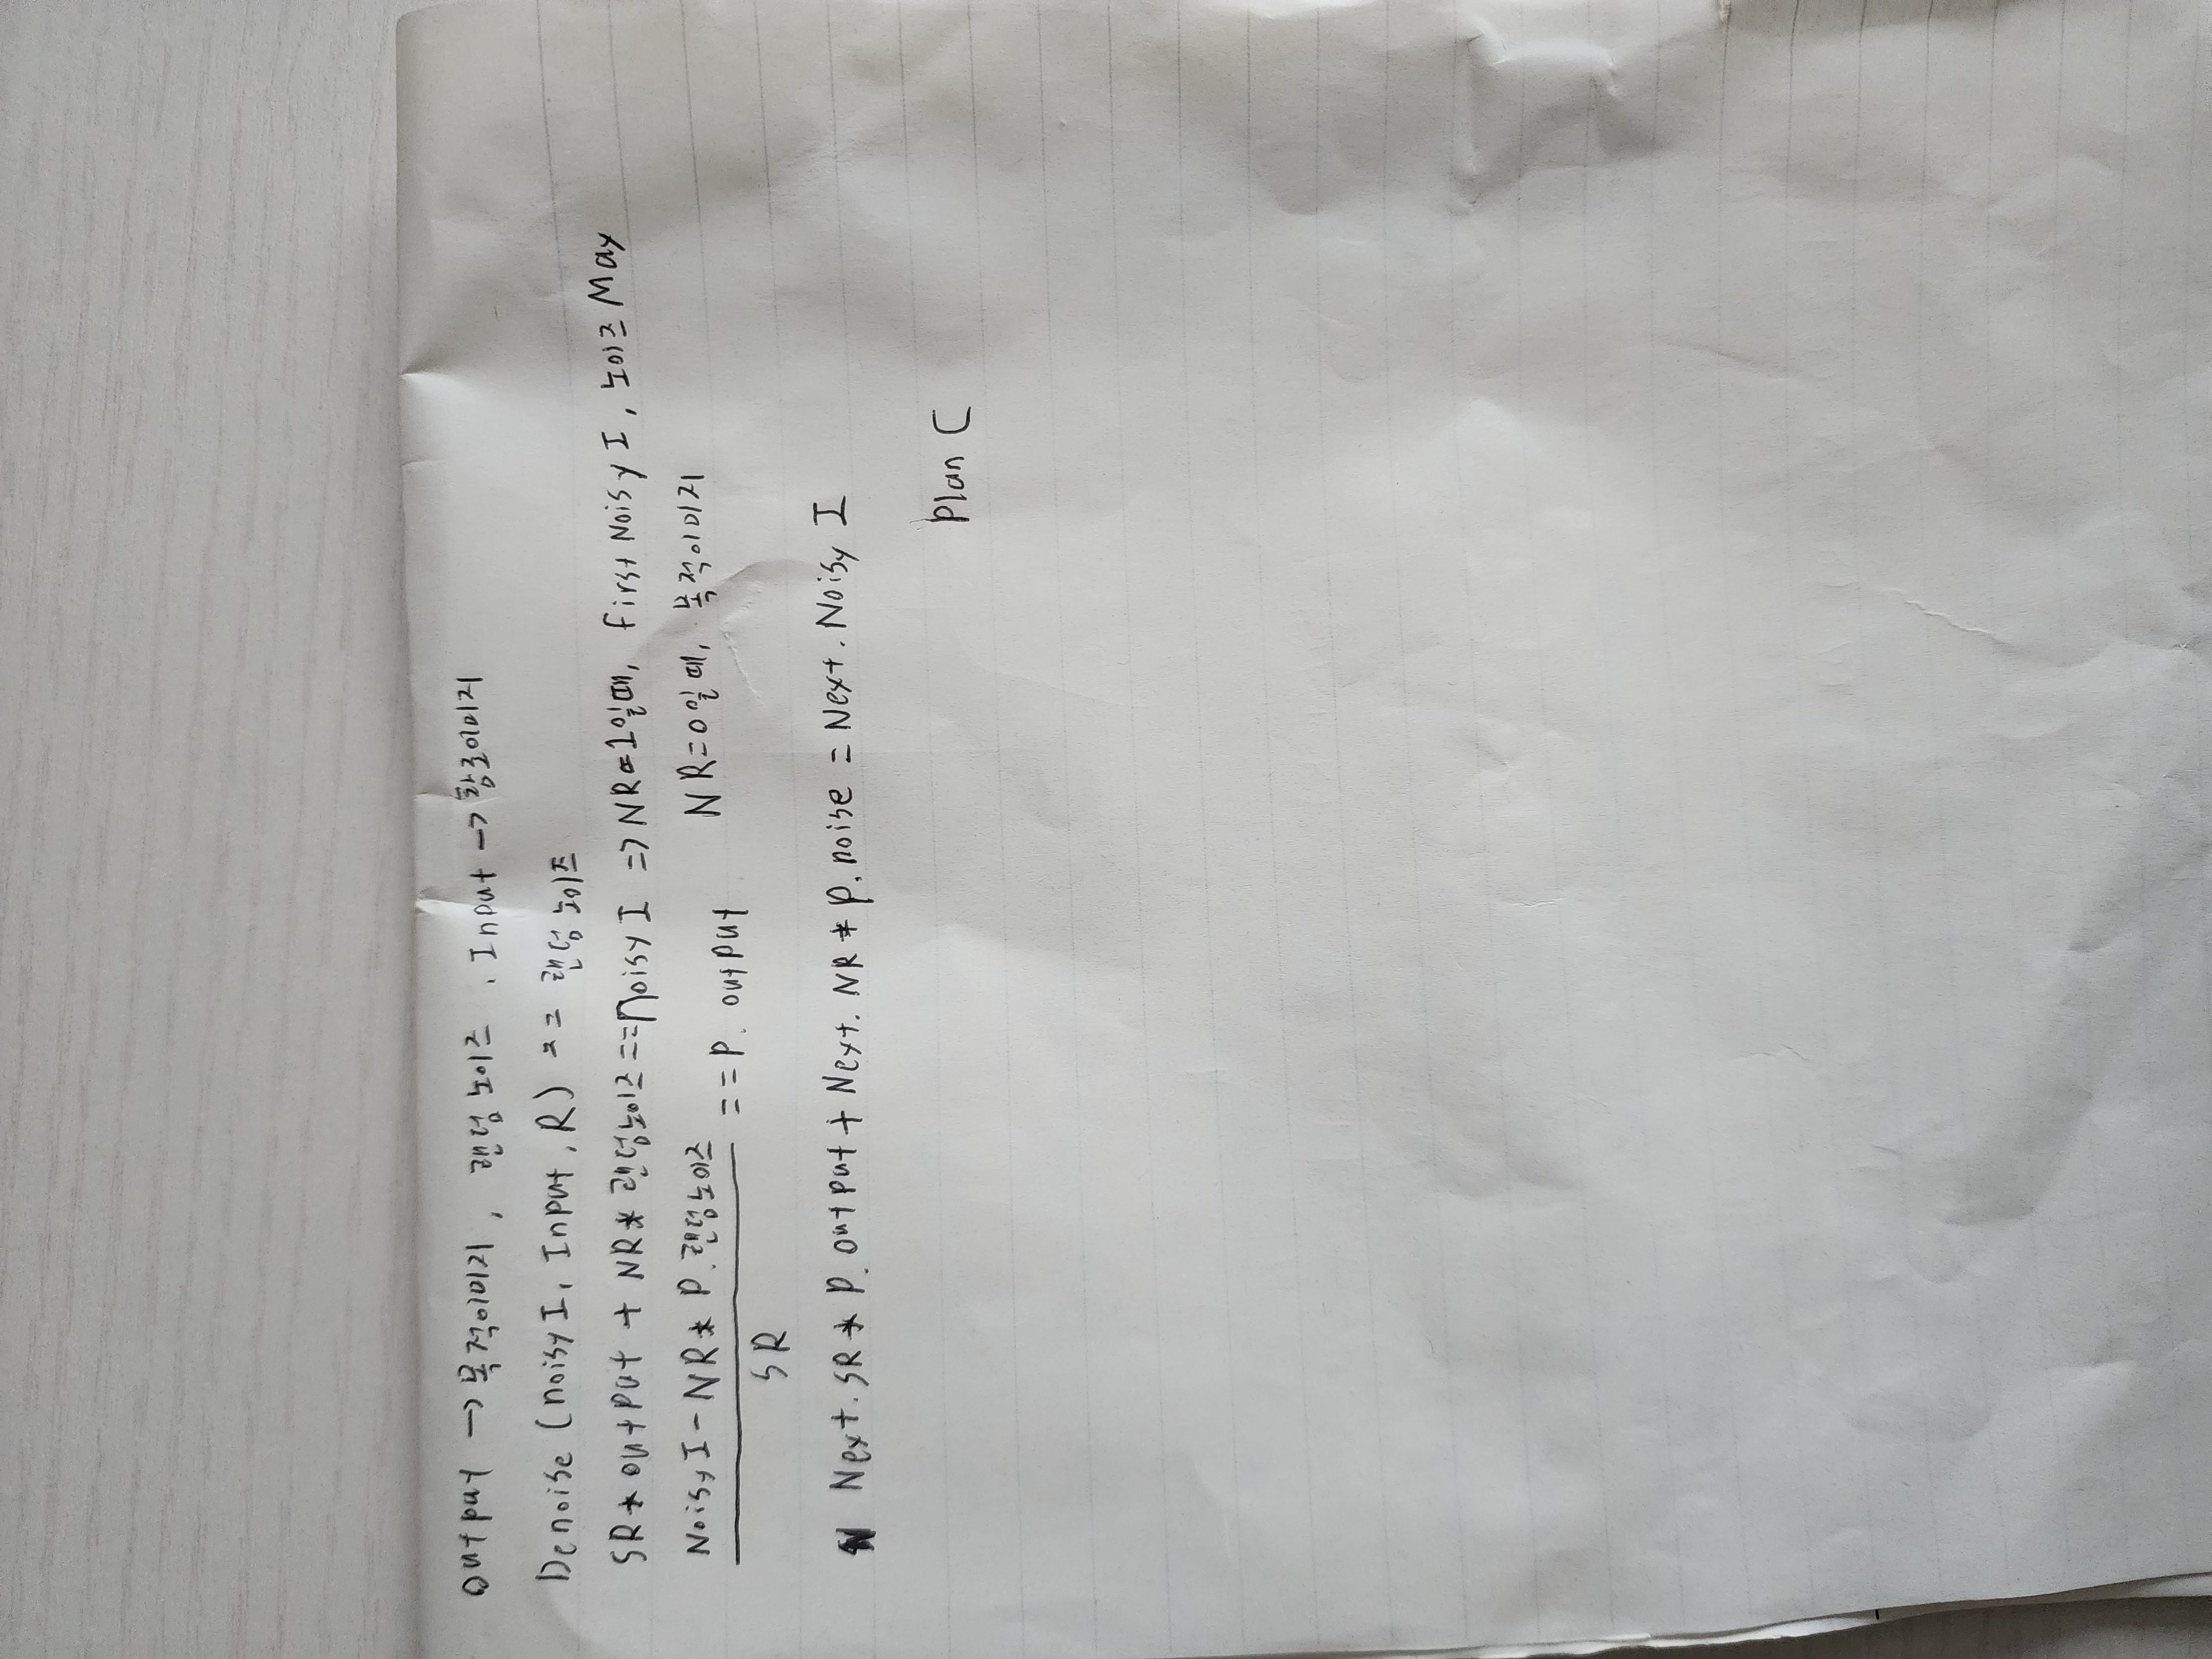 output → 목적이미지, 랜덤 노이즈. Input → 참조이미지
Denoise (noisy I, Input, R) == 랜덤 노이즈
SR * output + NR * 랜덤노이즈 == Noisy I => NR=1일때, First Noisy I, 노이즈 May
Noisy I - NR * P. 랜덤노이즈
== P. output NR=0일때, 목적이미지
SR
Next. SR * P. output + Next. NR * p. noise = Next. Noisy I
Plan C